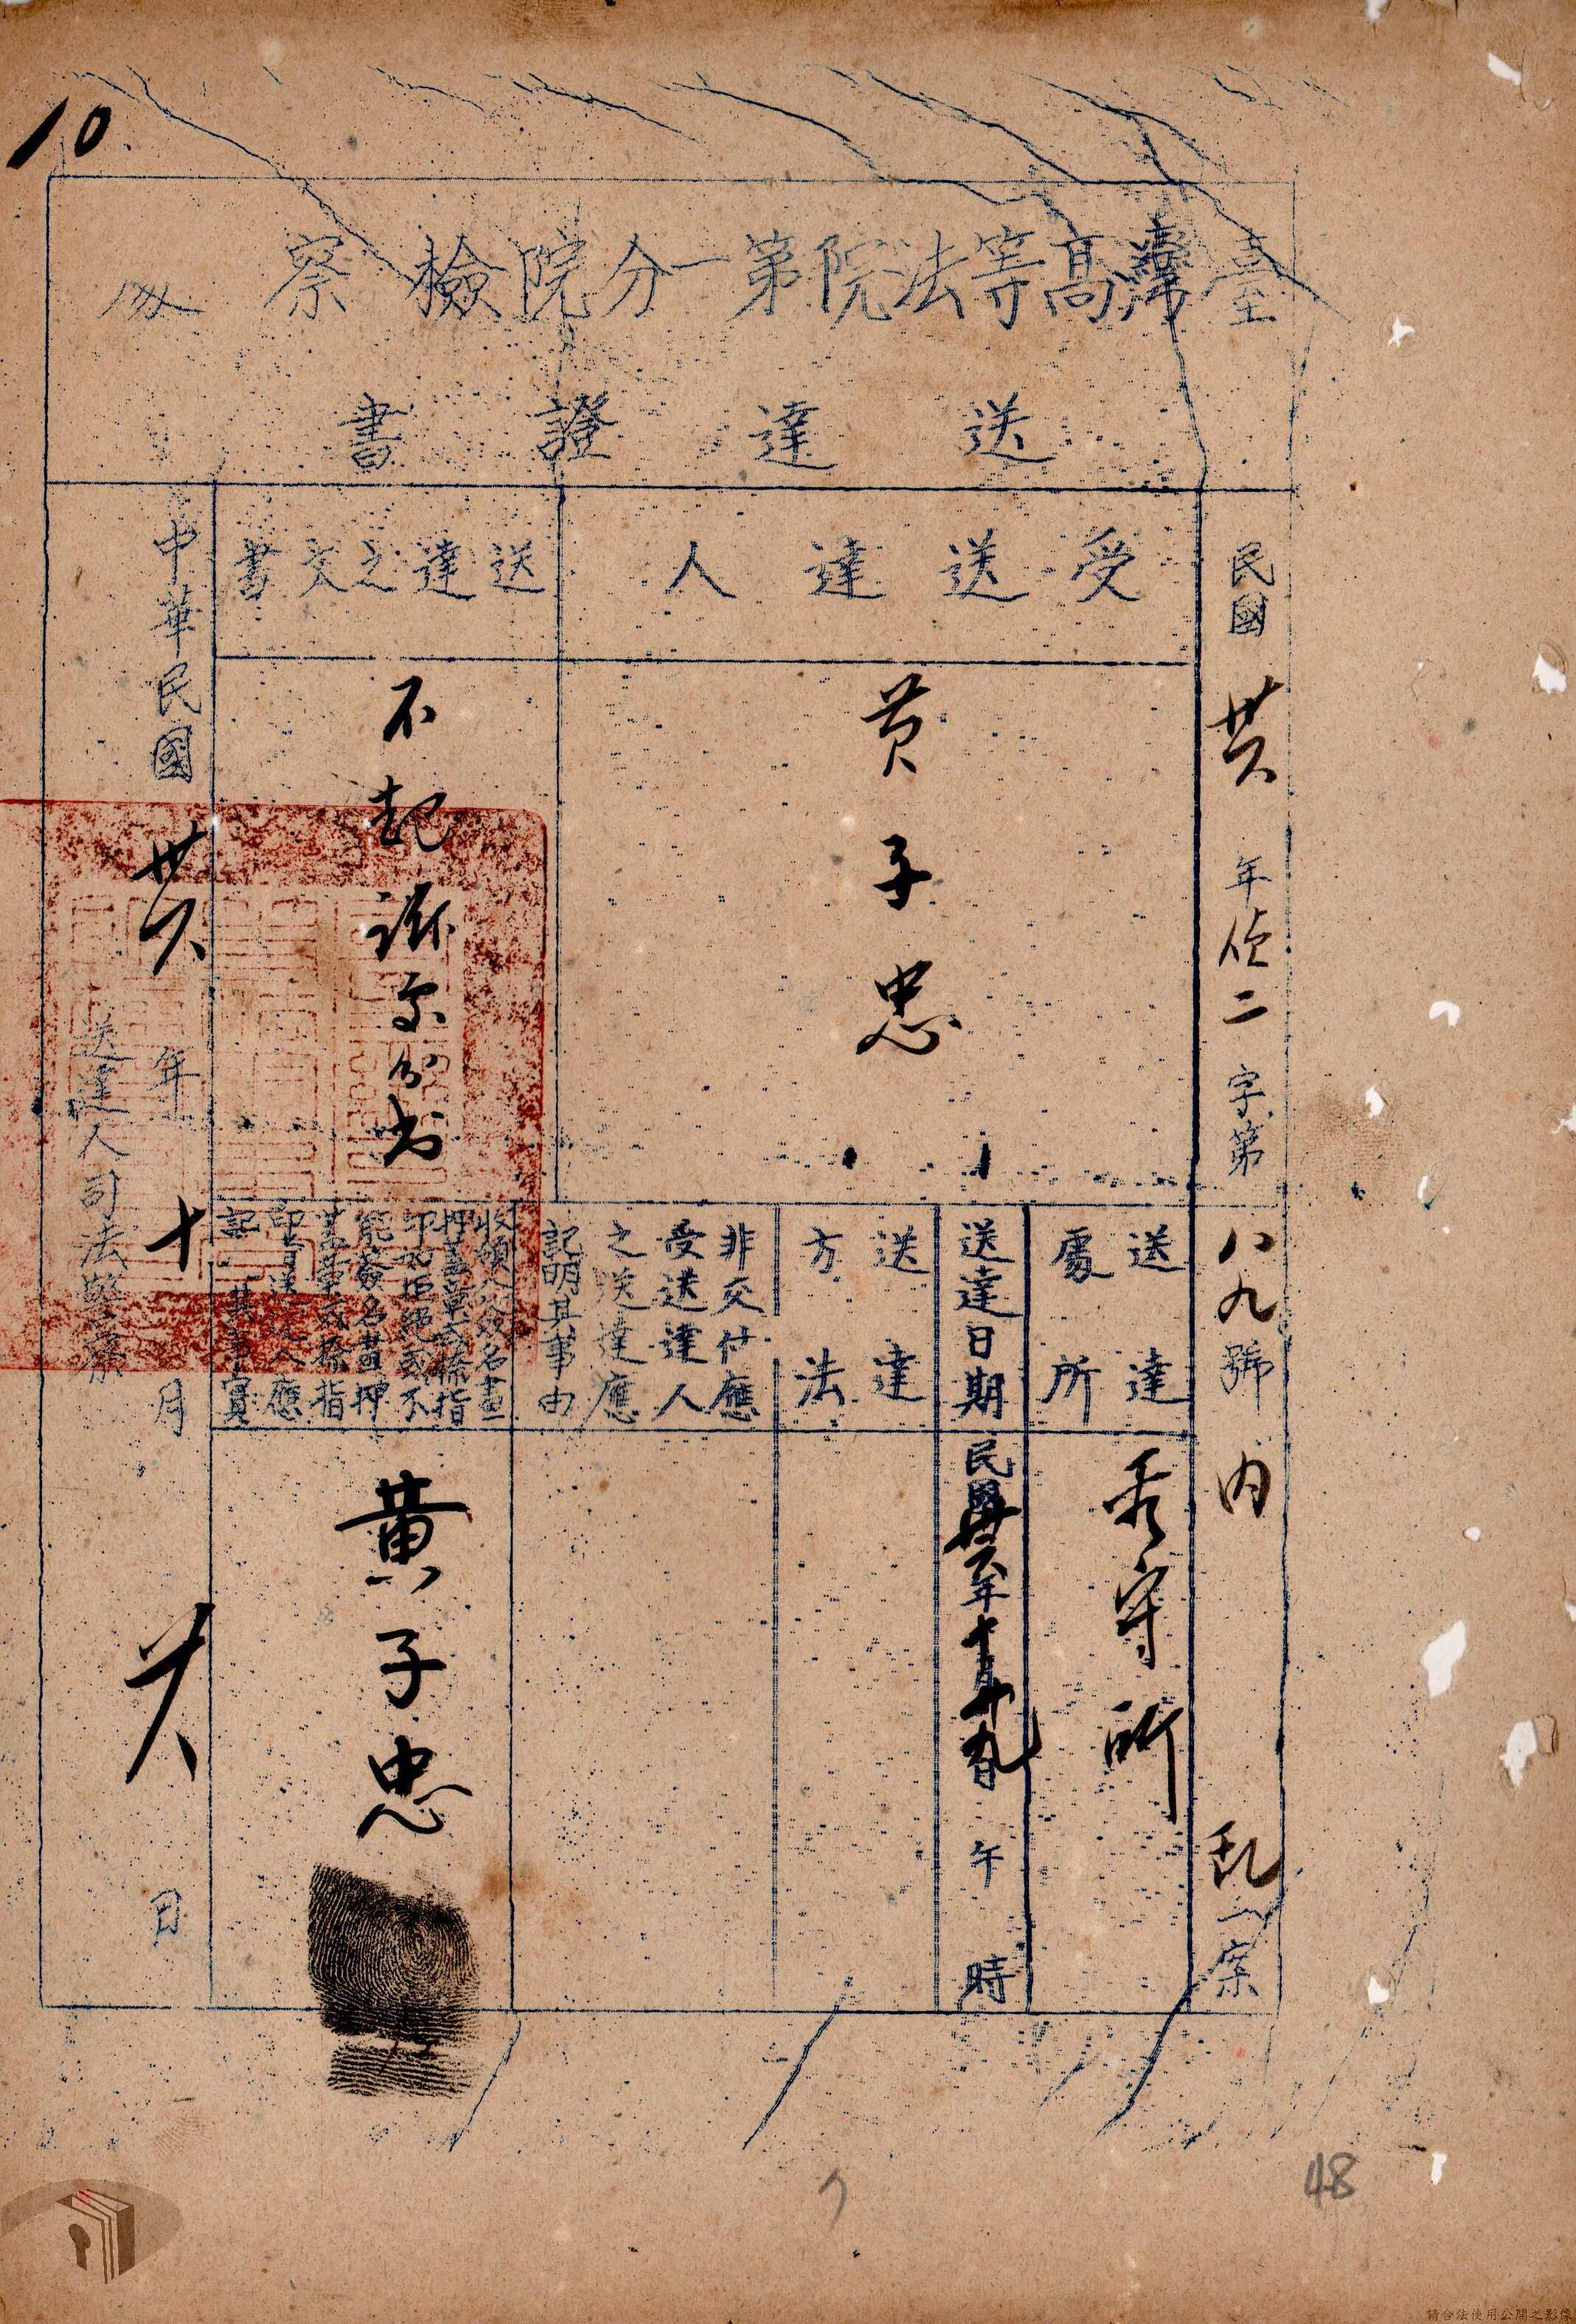 10
臺灣高等法院第一分院檢察
送達證書
民國 卅六 年 偵二 字第 八九 號 內 亂 一案
受送達人
黃子忠
送達之文書
不起訴處分書
送達處所
看守所
送達日期
民國卅六年十月廿九日 午 時
送達方法
非交付應
受送達人
之送達應
記明其事由
收領人簽名畫
押蓋章或捺指
印如拒絕或不
能簽名畫押
蓋章或捺指
印者送達人應
記 其事實
黃子忠
中華民國 卅六 年 十 月 廿八 日
送達人司法警察
48
請合法使用公開之影像